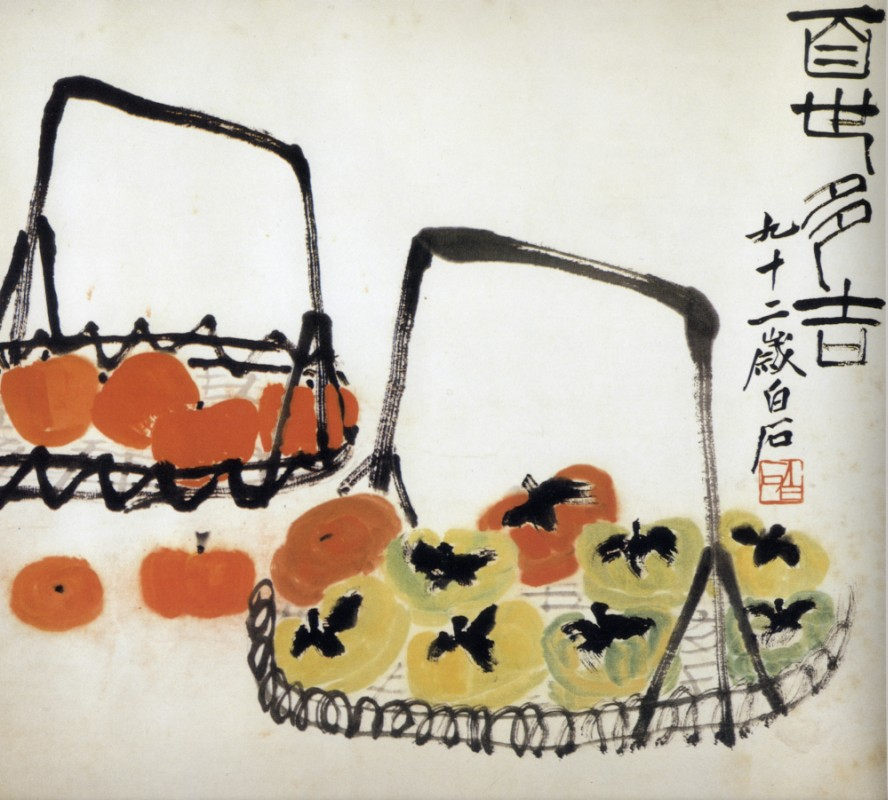 百世多吉
九十二歲白石